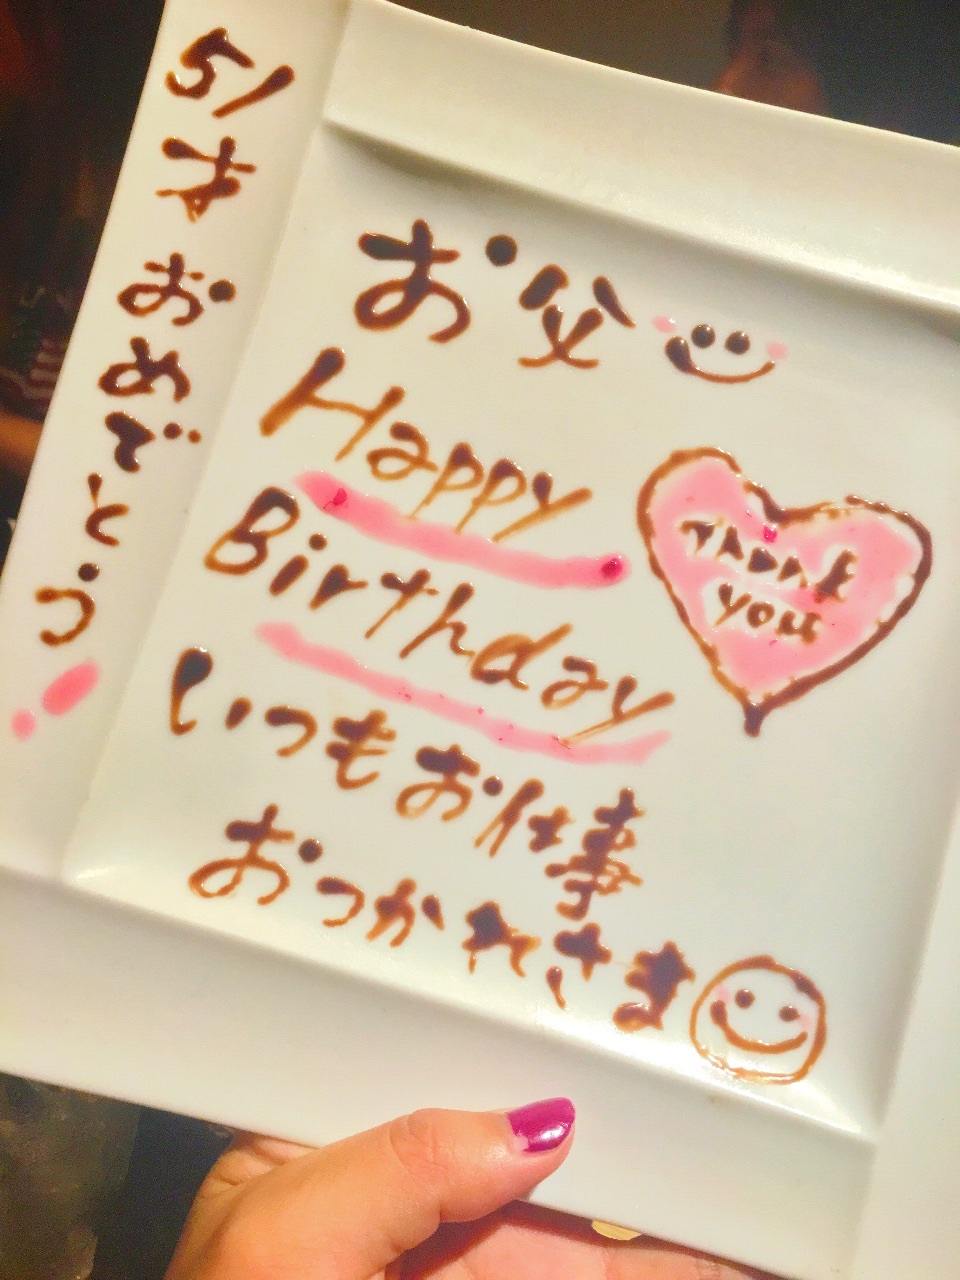 51才 おめでとう!
お父
Happy
Birthday
Thank
you
いつもお仕事
おつかれさま